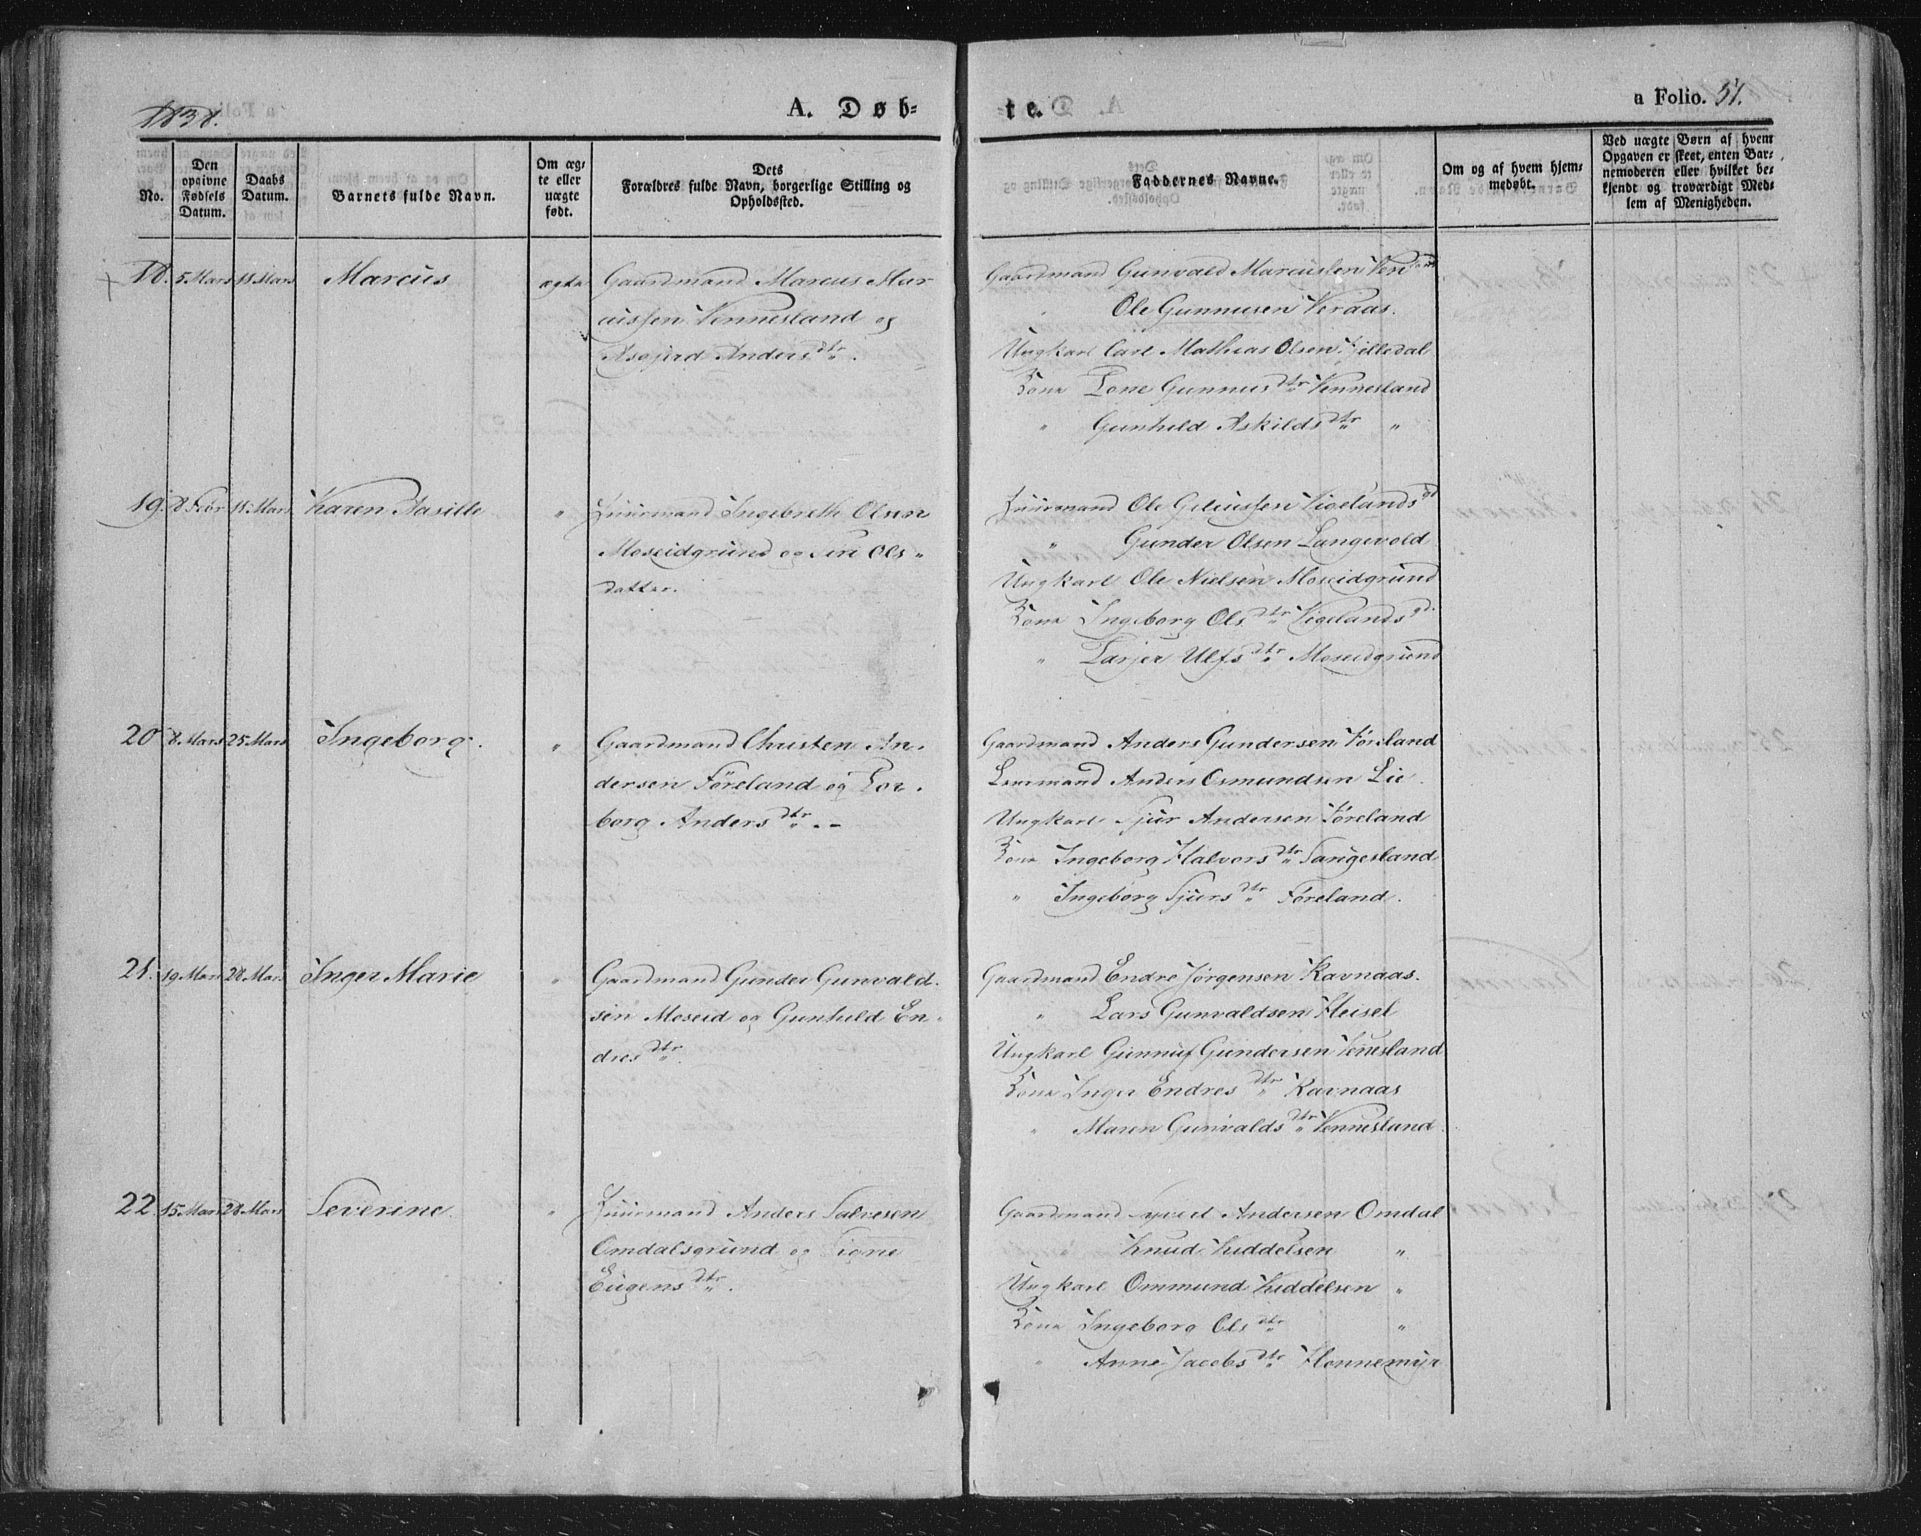 1838.
A. Døb-
te.
a Folio. 51.
No.
Den opgivne Fødsels Datum.
Daabs Datum.
Barnets fulde Navn.
Om ægte eller uægte født.
Dets Forældres fulde Navn, borgerlige Stilling og Opholdssted.
Faddernes Navne.
Om og af hvem hjemmedøbt.
Ved uægte Børn af hvem Opgaven er skeet, enten Barnemoderen eller hvilket bekjendt og troværdigt Medlem af Menigheden.
18. 5 Mars 11 Mars Marcus ægte Gaardmand Marcus Mar-
cussen Vennesland og
Asgjerd Anders dtr.
Gaardmand Gunvald Marcussen Vennesland
Ole Gunnusen Veraas.
Ungkarl Carl Mathias Olsen Tjelledal
Kone Tone Gunnus dtr Vennesland
" Gunhild Askilds dtr "
19. 8 Febr 11 Mars Karen Tasille " Huusmand Ingebreth Olsen
Moseidgrund og Siri Ols-
datter.
Huusmand Ole Geliussen Vigelandsgd
" Gunder Olsen Langevold
Ungkarl Ole Nielsen Moseidgrund
Kone Ingeborg Ols dtr Vigelandsgd.
" Tarjer Ulfs dtr Moseidgrund
20 8 Mars 25 Mars Ingeborg. " Gaardmand Christen An-
dersen Føreland og Tor-
borg Anders dtr. -
Gaardmand Anders Gundersen Føreland
Leurmand Anders Osmundsen Lie.
Ungkarl Sjur Andersen Føreland
Kone Ingeborg Halvors dtr Sangesland
" Ingeborg Sjurs dtr Føreland.
21. 19 Mars 28 Mars Inger Marie " Gaardmand Gunder Gunvald-
sen Moseid og Gunhild En-
dres dtr.
Gaardmand Endre Jørgensen Ravnaas.
" Lars Gunvaldsen Heisel
Ungkarl Gunnuf Gundersen Venesland
Kone Inger Endres dtr Ravnaas
" Maren Gunvalds dtr Vennesland.
22. 15 Mars 28 Mars Severine. " Huusmand Anders Salvesen
Omdalsgrund og Signe
Eugens dtr.
Gaardmand Syvert Andersen Omdal
Knud Kiddelsen "
Ungkarl Ommund Kiddelsen "
Kone Ingeborg Ols dtr "
" Anne Jacobs dtr Honnemyr